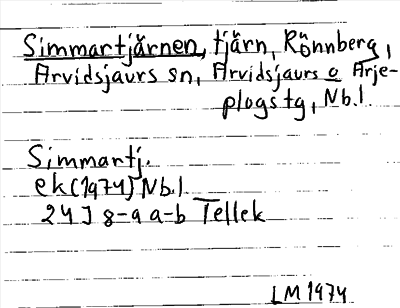 Simmartjärnen, tjärn, Rönnberg,
Arvidsjaurs sn, Arvidsjaurs o Arje-
plogs tg, Nb.l.
Simmartj.
ek (1974) Nb.l
24J 8-9 a-b Tellek
LM 1974